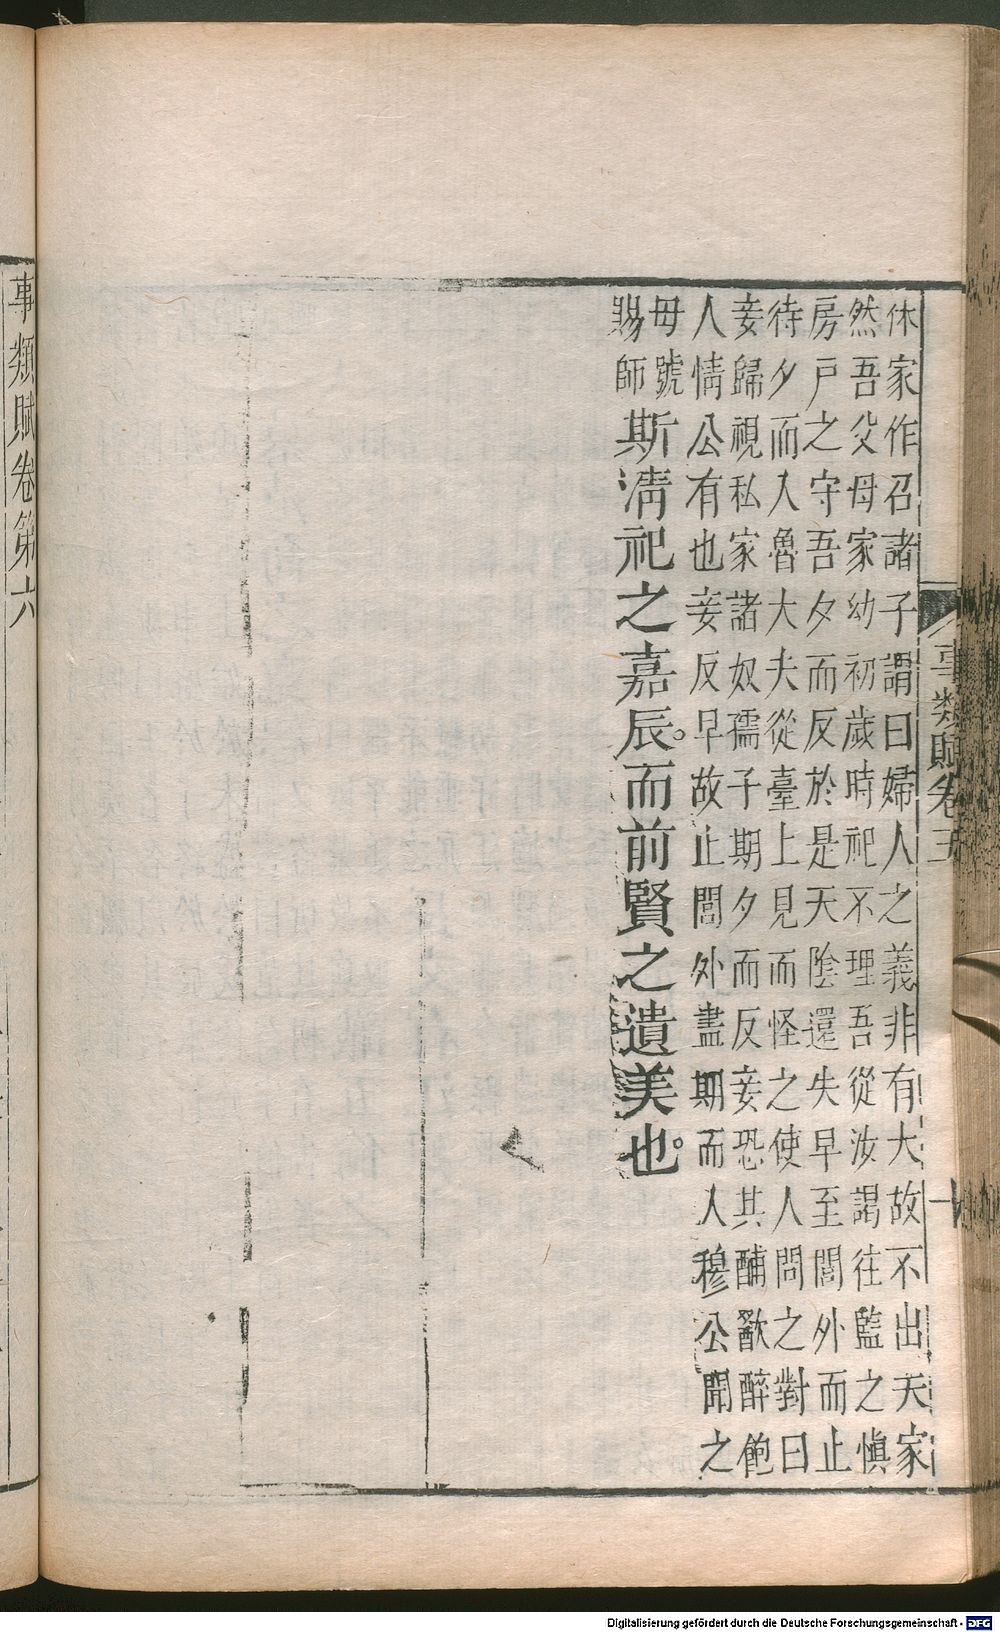 事類賦卷五
十
休家作召諸子謂曰婦人之義非有大故不出夫家
然吾父母家幼初歲時祀不理吾從汝謁往監之愼
房戸之守吾夕而反於是天陰還失早至閭外而止
待夕而入魯大夫從臺上見而怪之使人問之對曰
妾歸視私家諸奴孺子期夕而反妾恐其酺歠醉飽
人情公有也妾反早故止閭外盡期而入穆公聞之
母號
賜師
斯淸祀之嘉辰。而前賢之遺美也。
事類賦卷第六
Digitalisierung gefördert durch die Deutsche Forschungsgemeinschaft - DFG